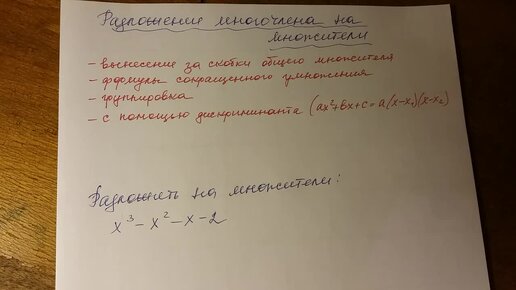 Разложение многочлена на
множители
- вынесение за скобки общего множителя
- формулы сокращенного умножения
- группировка
- с помощью дискриминанта (ax²+bx+c=a(x-x₁)(x-x₂)
Разложить на множители:
x³-x²-x-2